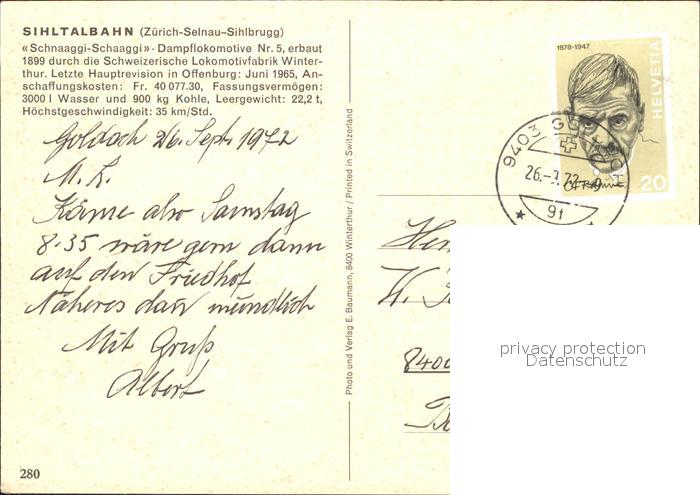 SIHLTALBAHN (Zürich-Selnau–Sihlbrugg)
«Schnaaggi-Schaaggi» - Dampflokomotive Nr. 5, erbaut
1899 durch die Schweizerische Lokomotivfabrik Winter-
thur. Letzte Hauptrevision in Offenburg: Juni 1965, An-
schaffungskosten: Fr. 40 077.30, Fassungsvermögen:
3000 l Wasser und 900 kg Kohle, Leergewicht: 22,2 t,
Höchstgeschwindigkeit: 35 km/Std.
Goldach 26. Sept. 1972
M. L.
Käme also Samstag
8.35 wäre gern dann
auf den Friedhof
Näheres dann mündlich
Mit Gruß
Albert
280
Photo und Verlag E. Baumann, 8400 Winterthur / Printed in Switzerland
1878-1947
HELVETIA
20
9403
26.-9.72-9
9f
W.
8400
privacy protection
Datenschutz